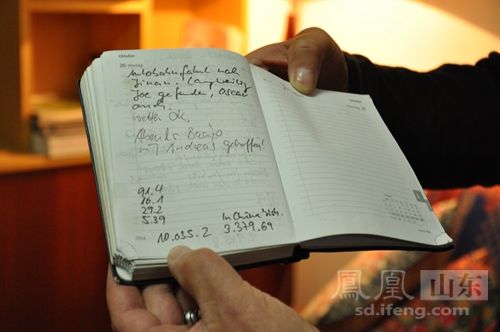 Oktober
20 Montag
Autobahnfahrt nach
Jinan. Langweilig
Joe gefunden, Oscar
auch.
Wetter OK,
Abends Banjo
mit Andreas getroffen!
91.4
16.1
29.2
5.39
10.035.2
In China bish.
3.379.69
鳳凰 山东
sd.ifeng.com